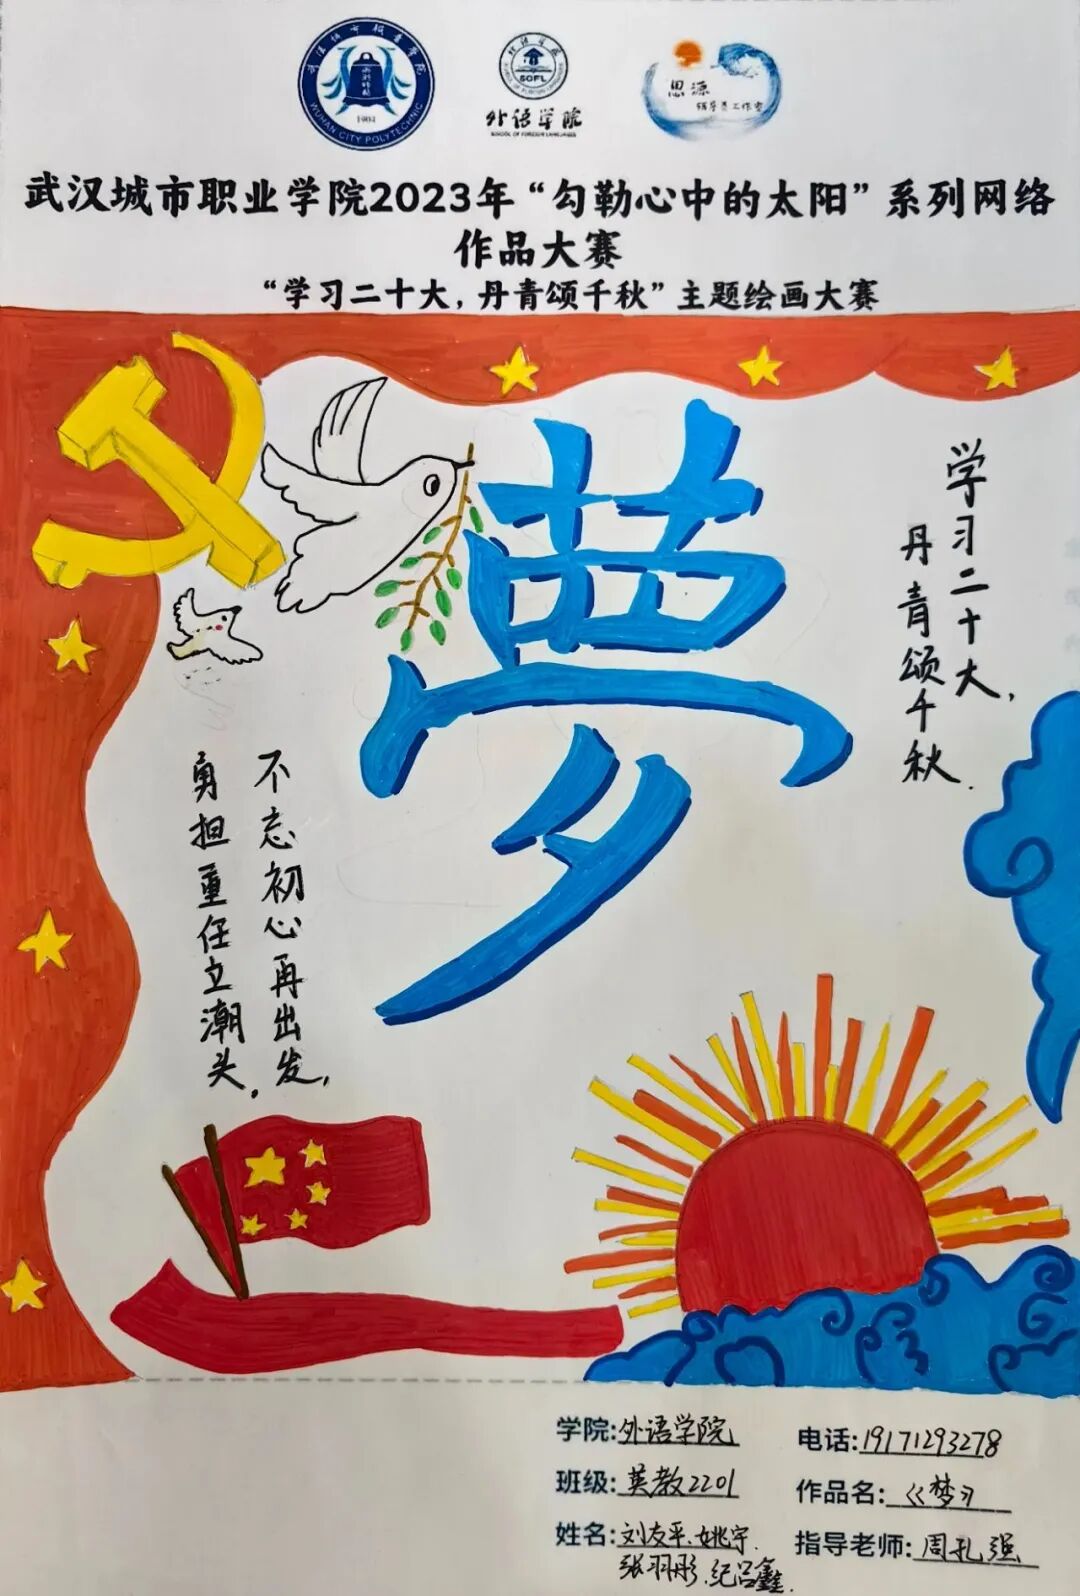 武汉城市职业学院
WUHAN CITY POLYTECHNIC
1904
外语学院
SOFL
SCHOOL OF FOREIGN LANGUAGES
外语学院
SCHOOL OF FOREIGN LANGUAGES
思源
辅导员工作室
武汉城市职业学院2023年“勾勒心中的太阳”系列网络
作品大赛
“学习二十大，丹青颂千秋”主题绘画大赛
夢
学习二十大，
丹青颂千秋.
不忘初心再出发，
勇担重任立潮头。
学院:外语学院
电话:19171293278
班级:英教2201
作品名:《梦》
姓名:刘友平、姚宇、
张羽彤、纪吕鑫.
指导老师:周孔强